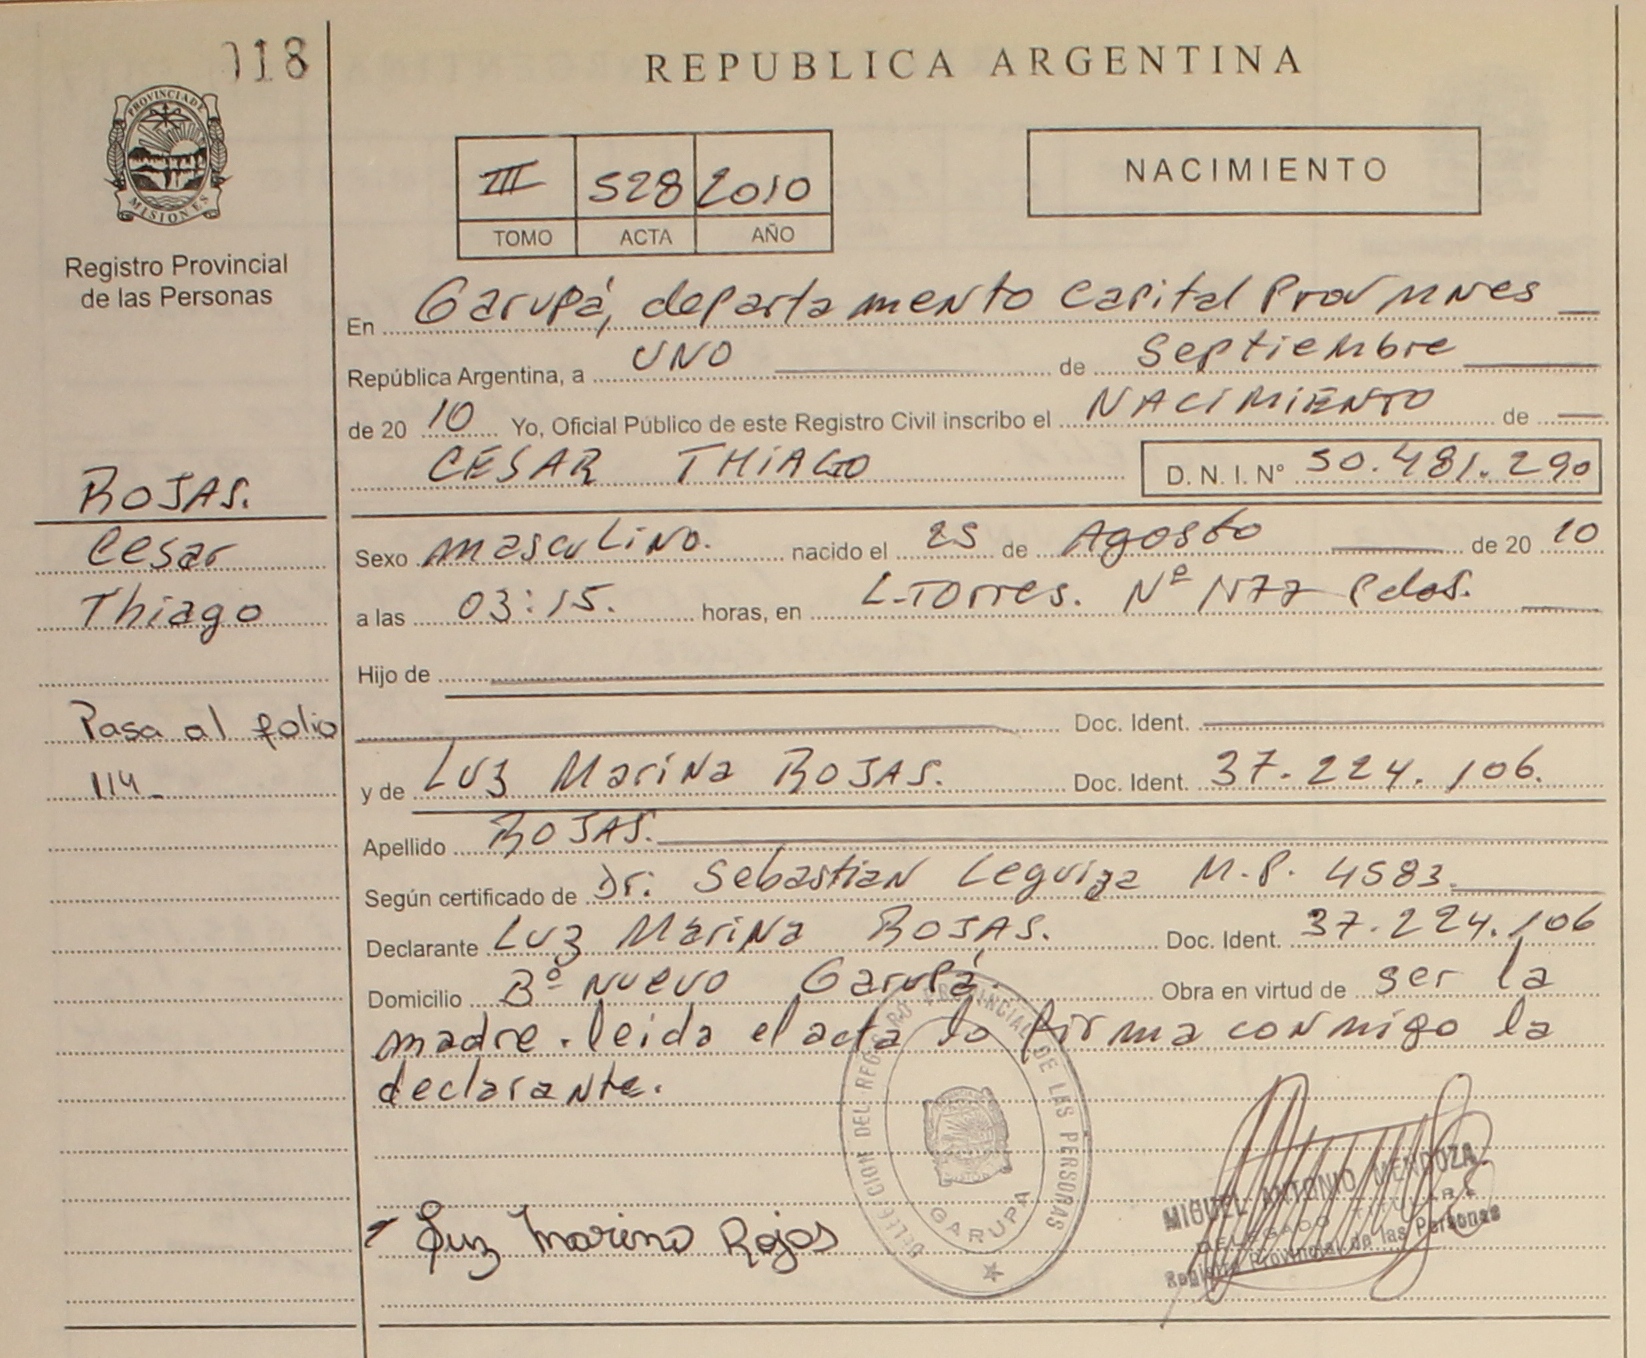 018
REPUBLICA ARGENTINA
PROVINCIA DE
MISIONES
Registro Provincial
de las Personas
III 528 2010
TOMO ACTA AÑO
NACIMIENTO
En Garupá, departamento Capital Prov
República Argentina, a UNO de Septiembre
de 2010 Yo, Oficial Público de este Registro Civil inscribo el NACIMIENTO de
CESAR THIAGO D. N. I. Nº 50.481.290
ROJAS.
Cesar
Thiago
Sexo masculino. nacido el 25 de Agosto de 2010
a las 03:15. horas, en L-Torres. Nº 1177 Pdas.
Hijo de
Doc. Ident.
Pasa al folio
114
y de Luz Marina ROJAS. Doc. Ident. 37.224.106.
Apellido ROJAS.
Según certificado de Dr. Sebastian Leguiza M.P. 4583
Declarante Luz Marina ROJAS. Doc. Ident. 37.224.106
Domicilio Bº Nuevo Garupá. Obra en virtud de ser la
madre. leida el acta lo firma conmigo la
declarante.
DELEGACION DEL REGISTRO PROVINCIAL DE LAS PERSONAS
GARUPA
Luz Marina Rojas
MIGUEL ANTONIO MENDOZA
DELEGADO TITULAR
Registro Provincial de las Personas